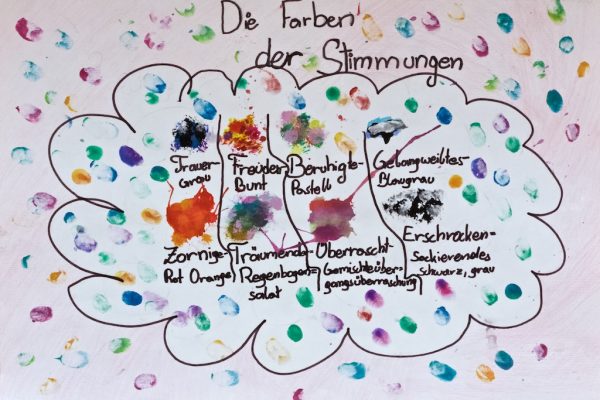 Die Farben
der Stimmungen
Trauer-
Grau
Freuden-
Bunt
Beruhigte-
Pastell
Gelangweiltes-
Blaugrau
Zornige-
Rot Orange
Träumende-
Regenbogen-
salat
Überrascht-
(Gemischteüber-
gangsüberraschung)
Erschrocken-
schwarz, grau